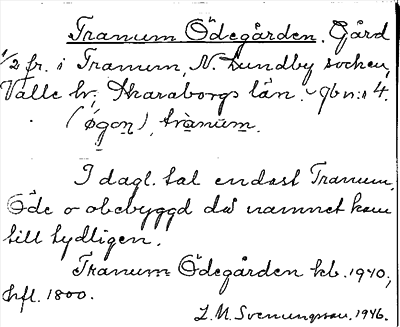 Tranum Ödegården. Gård
1/2 fr. i Tranum, N. Lundby socken,
Valle hr; Skaraborgs län. gbn:r 4.
(øgon), tranum.
I dagl. tal endast Tranum,
Öde o obebyggd då namnet kom
till tydligen.
Tranum Ödegården kb. 1940;
hfl. 1800.
L. M. Svenungsson. 1946.